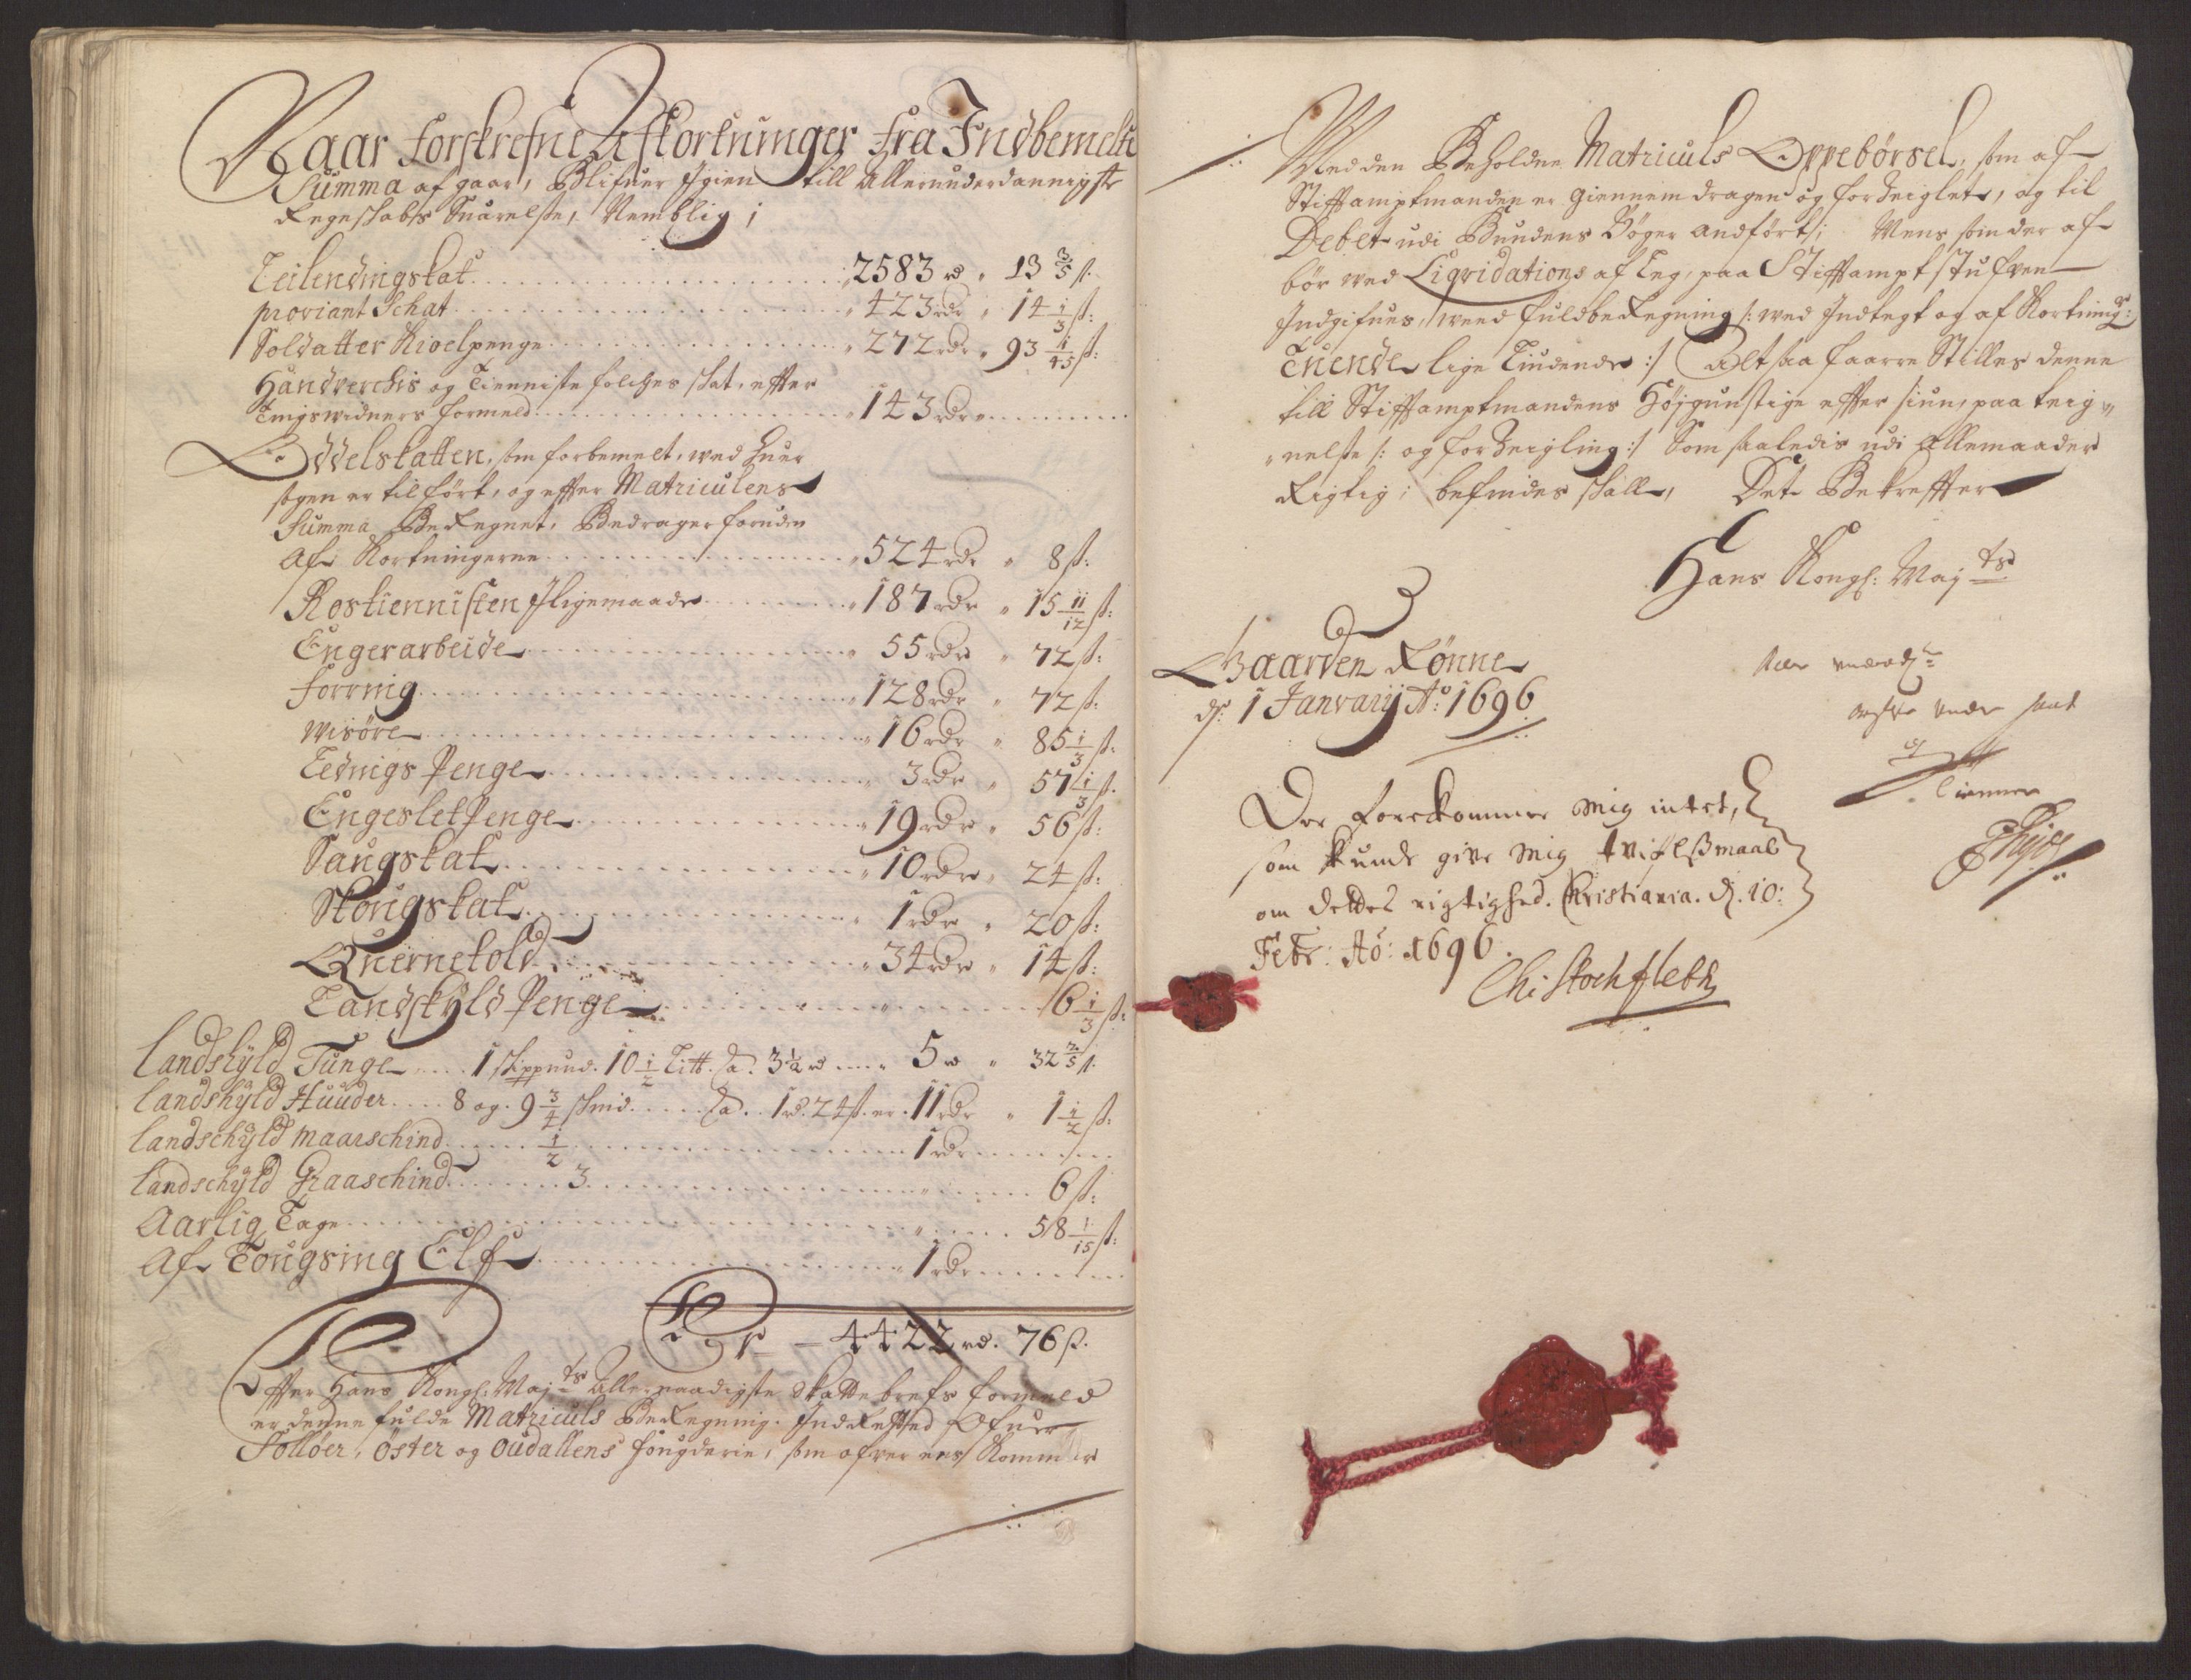 Naar forskrefne Afkortninger fra Indbemelte
Summa af gaar, Blifuer Igien till Allerunderdannigste
Regeskabs Suarelse, Nemblig;
Leilendingskat 2583 rd " 13 3/5 s:
proviant Schat 423 rdr " 14 1/3 s:
Soldatter Kioelpenge 272 rdr " 93 4/45 s:
Handverchis og Tienniste folches skat, effter
Tingswidners formeld 143 rdr
Oddelskatten, som forbemelt, wed huer
sogen er tilført, og effter Matriculens
Summa BeRegnet, Bedrager foruden
Af Kortningerne 524 rdr " 8 s:
Rostiennisten Iligemaade 187 rdr " 15 11/12 s:
Engerarbeide 55 rdr " 72 s:
forring 128 rdr " 72 s:
Wisøre 16 rdr " 85 1/3 s:
Ledings Penge 3 rdr " 57 1/3 s:
Engeslet Penge 19 rdr " 56 s:
Saugskat 10 rdr " 24 s:
Skougskat 1 rdr " 20 s:
Quernetold 34 rdr " 14 s:
Landskyld Penge " 6 1/3 s:
Landskyld Tunge 1 skippund. 10 1/2 Litt. a. 3 1/2 rd 5 rd " 32 2/5 s:
Landskyld Huuder 8 og. 9 3/4 skind a. 1 rd. 24 s. er. 11 rdr " 1 1/2 s:
Landschyld maarschind 1/2 1 rdr
Landschyld Graaschind 3 " 6 s:
Aarlig Tage " 58 1/15 s:
Af Tougsing Elf 1 rdr
Er 4422 rd. 76 s.
Effter Hans Kongl: Maj ts Allernaadigste Skattebrefs formeld
er denne fulde Matriculs BeRegning. IndRetted Ofuer
Folloer, Öster og Oudallens fougderie, som ofver eens Kommer
Med den Beholdne Matriculs Oppebørsel, som af
Stifftamptmanden er Giennemdragen og forSeiglet, og til
Debet udi Bundens Bøger andført; Mens som der af
bör wed Liqvidations afleg, paa Stifftamptstufven
Indgifues, weed fuldbeRegning /: wed Indtegt og af Kortning:
Tuende lige Liudende :/ Altsaa faarre Stilles denne
till Stifftamptmandens Höjgunstige effter siun, paa teig"
"nelse /: og forSeigling :/ Som saaledis udi Allemaader
Rigtig; befindes skall, Det Bekreffter
Hans Kongl: Maj ts
Gaarden Rønne
d: 1 Janvarij Ao: 1696
Tienner
Der forekommer mig intet,
som kunde give mig tvifelsmaal
om dettes rigtighed. Christiania. d. 10:
Febr: Ao: 1696.
Chr Stockfleth